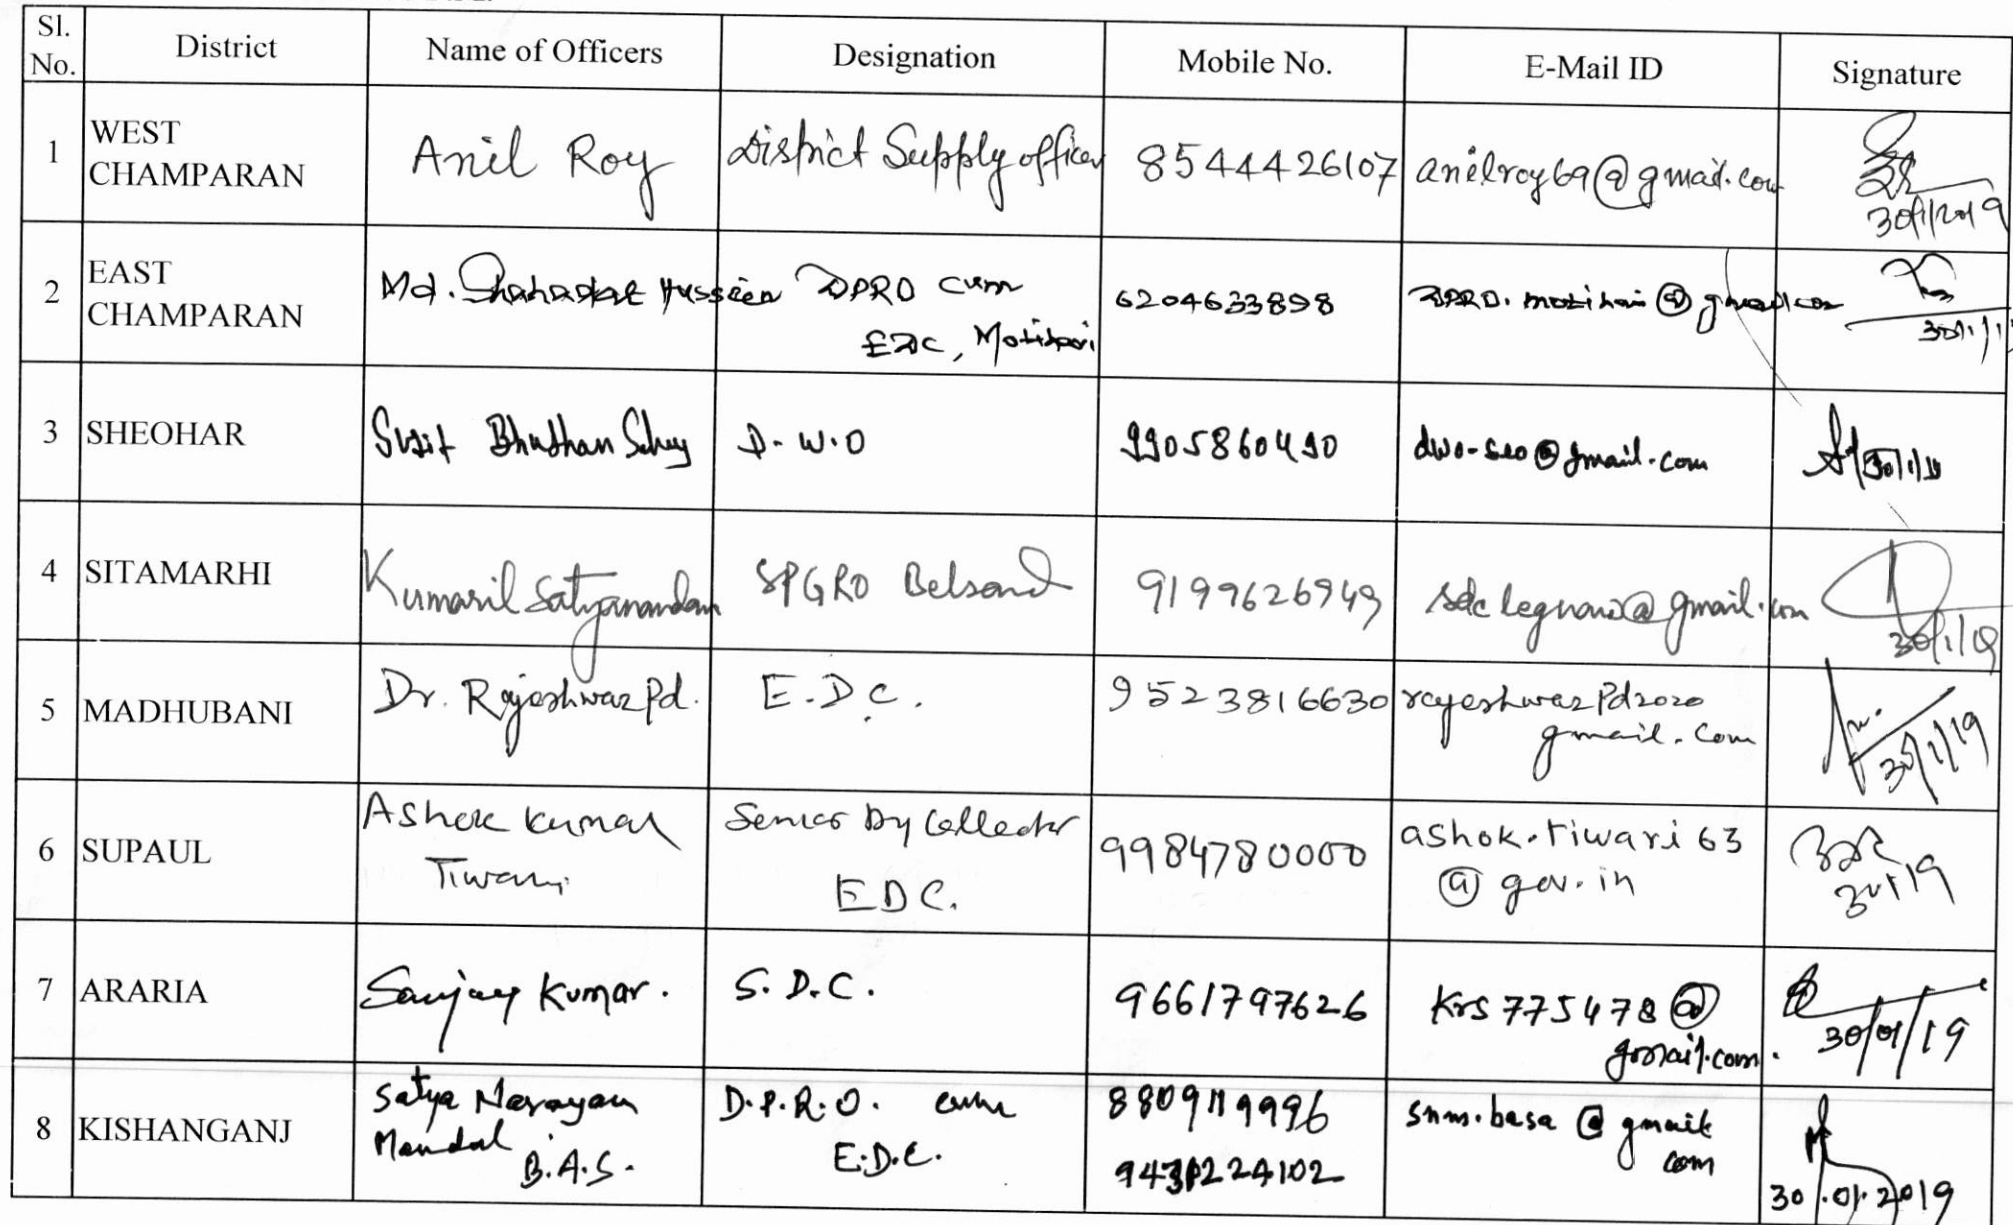 Sl. No. District Name of Officers Designation Mobile No. E-Mail ID Signature
1 WEST CHAMPARAN Anil Roy District Supply officer 8544426107 anilroy69@gmail.com 30/1/2019
2 EAST CHAMPARAN Md. Shahadat Hussain DPRO cum EDC, Motihari 6204633898 30/1/1
3 SHEOHAR Bhushan D.W.O 9905860490 dwo-seo@gmail.com 30/1/19
4 SITAMARHI Kumaril Satyanandam SPGRO Belsand 9199626949 @gmail.com 30/1/19
5 MADHUBANI Dr. Rajeshwar Pd. E.D.C. 9523816630 rajeshwarpd2020 gmail.com 30/1/19
6 SUPAUL Ashok Kumar Tiwari Senior Dy Collector EDC. 9984780000 ashok.tiwari63 @ gov.in 30/1/19
7 ARARIA Sanjay Kumar. S.D.C. 9661797626 Krs775478@ gmail.com. 30/01/19
8 KISHANGANJ Satya Narayan Mandal B.A.S. D.P.R.O. cum E.D.C. 8809119996 9431224102 snm.basa @ gmail com 30.01.2019